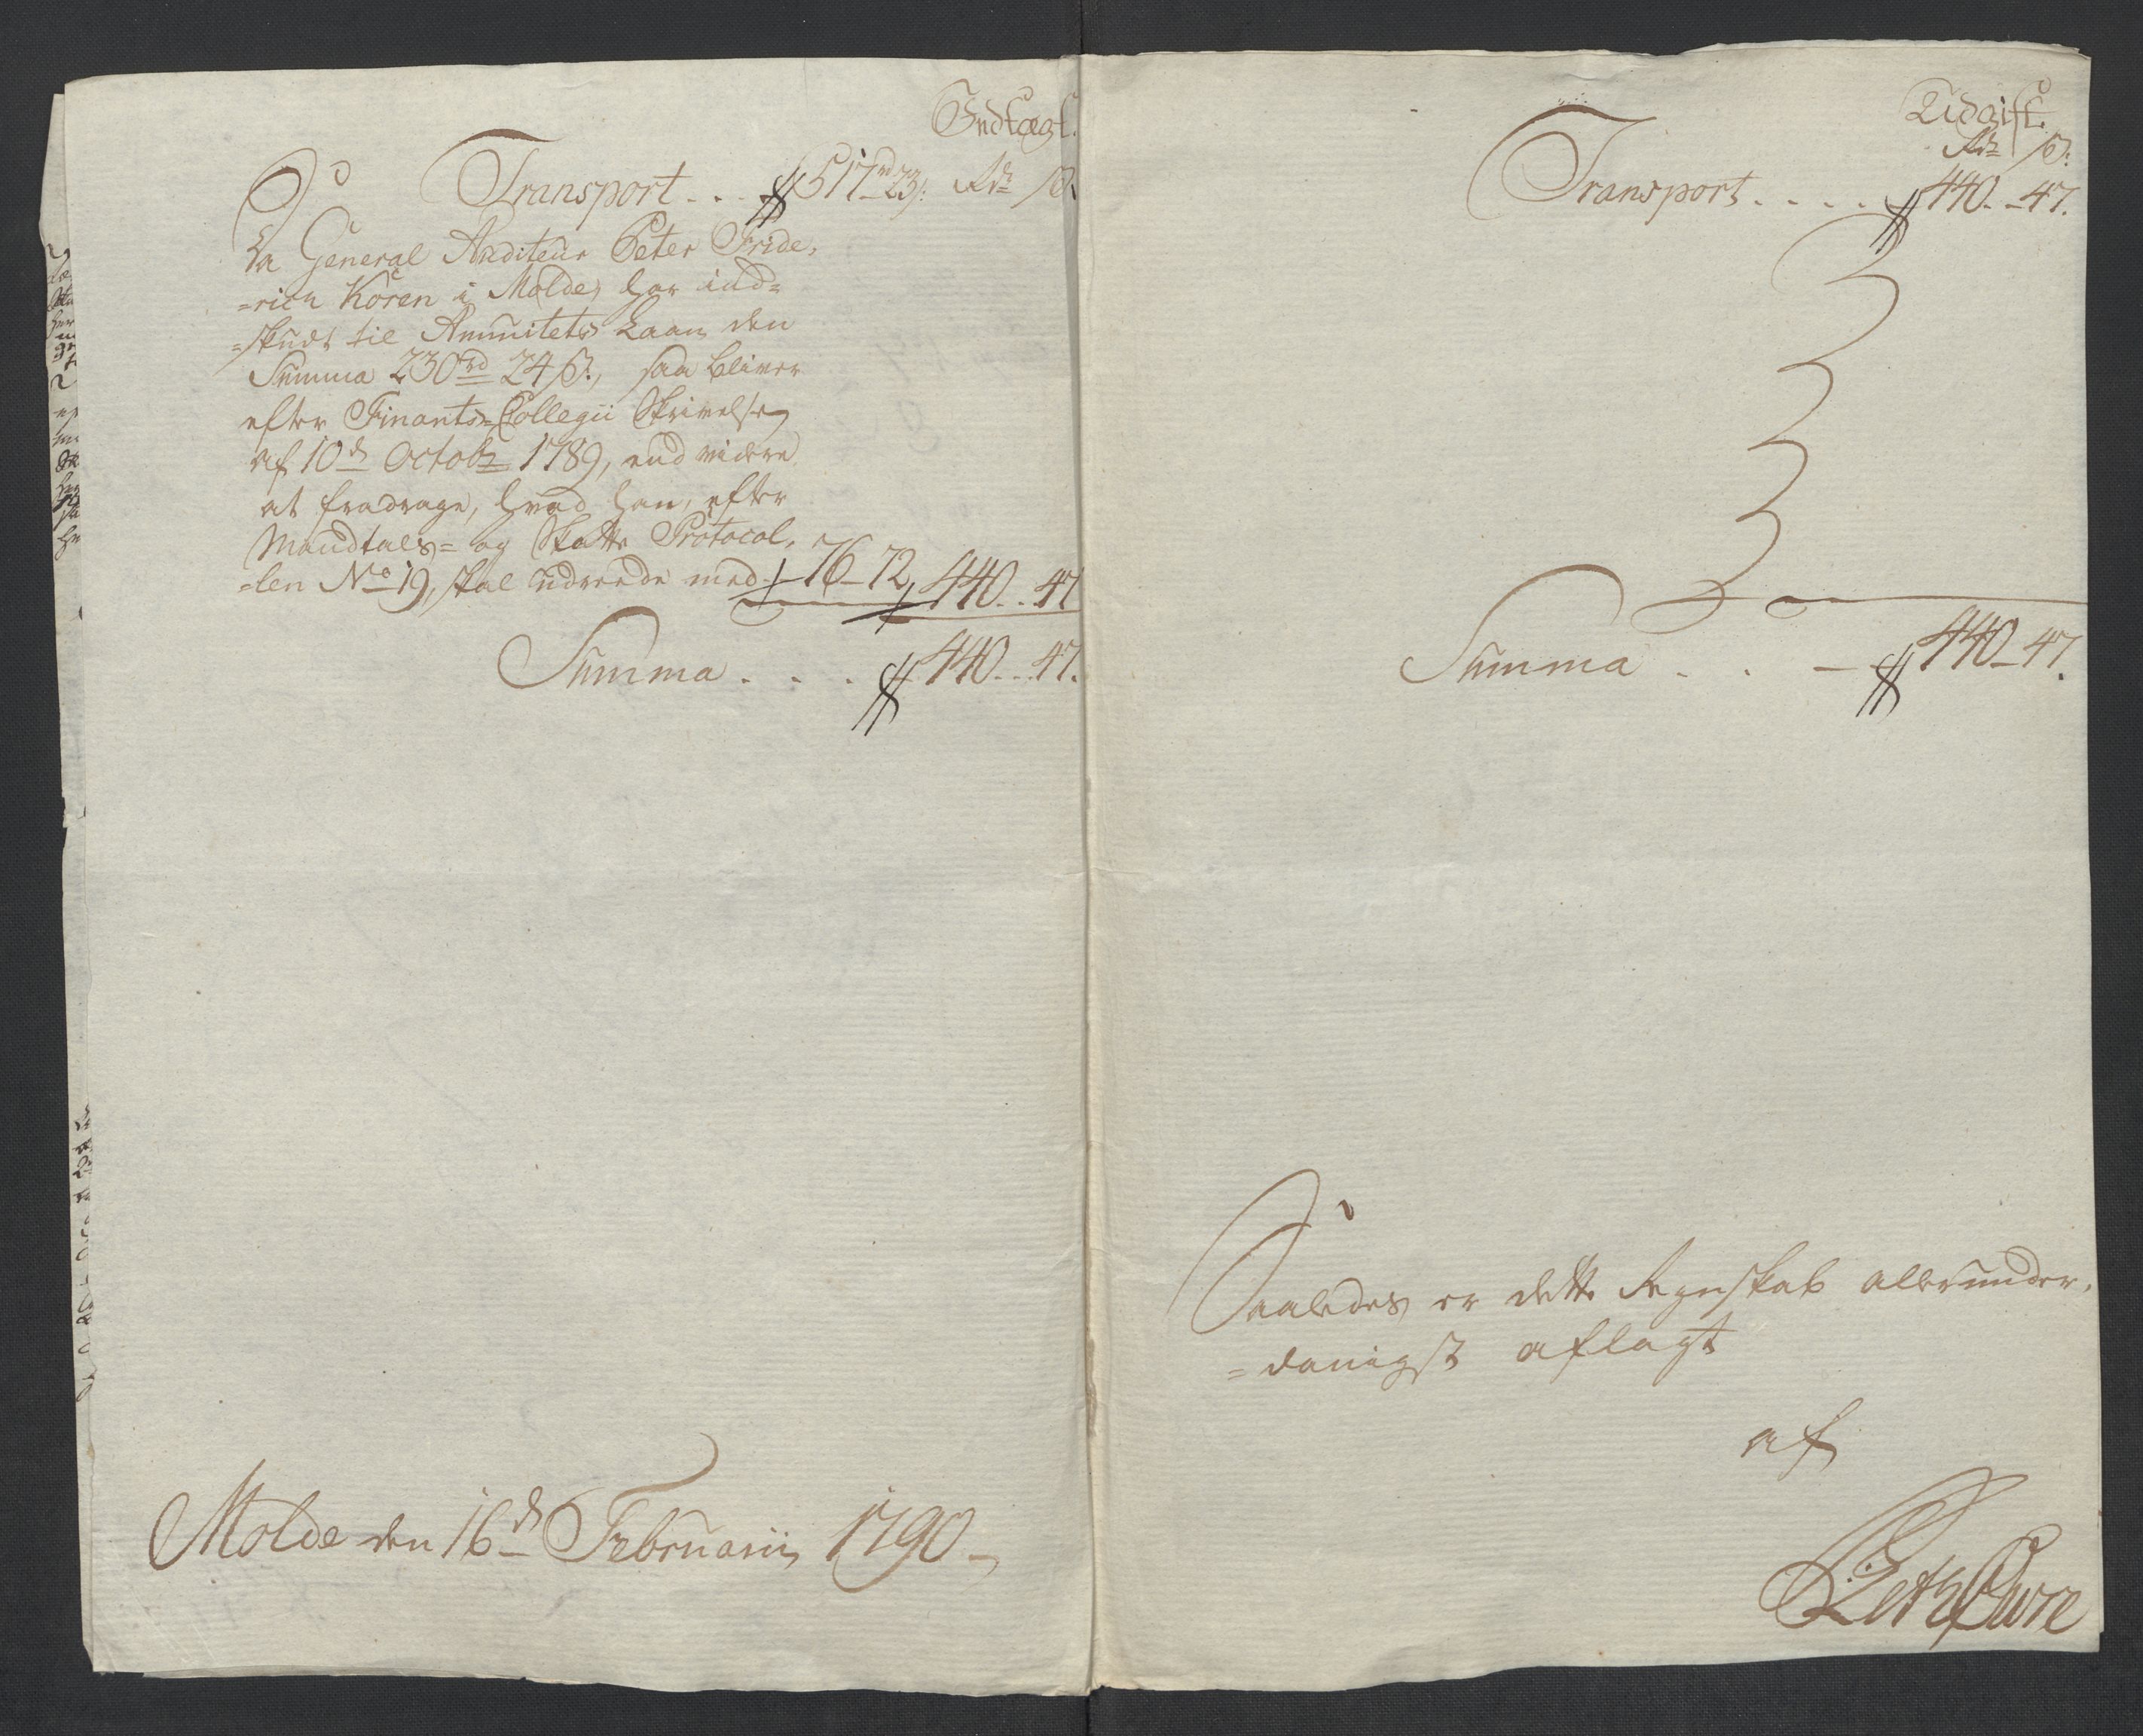 Indtægt.
Transport . . . 517rd 23ß. Rdr ß.
Da General Auditeur Peter Fride,
=rich Koren i Molde, har ind=
=skudt til Annuitets Laan den
Summa 230rd 24ß., saa bliver
efter Finants-Collegii Skrivelse
af 10d Octobr 1789, end videre
at fradrage, hvad han, efter
Mandtals= og Skatte Protocol,
=len No 19, skal udreede med 76-72, 440..47
Summa . . . 440...47.
Molde den 16d Februarii 1790
Udgift.
Rdr ß.
Transport . . . . 440.-47.
Summa . . 440-47.
Saaledes er dette Regnskab allerunder,
=danigst aflagt
af